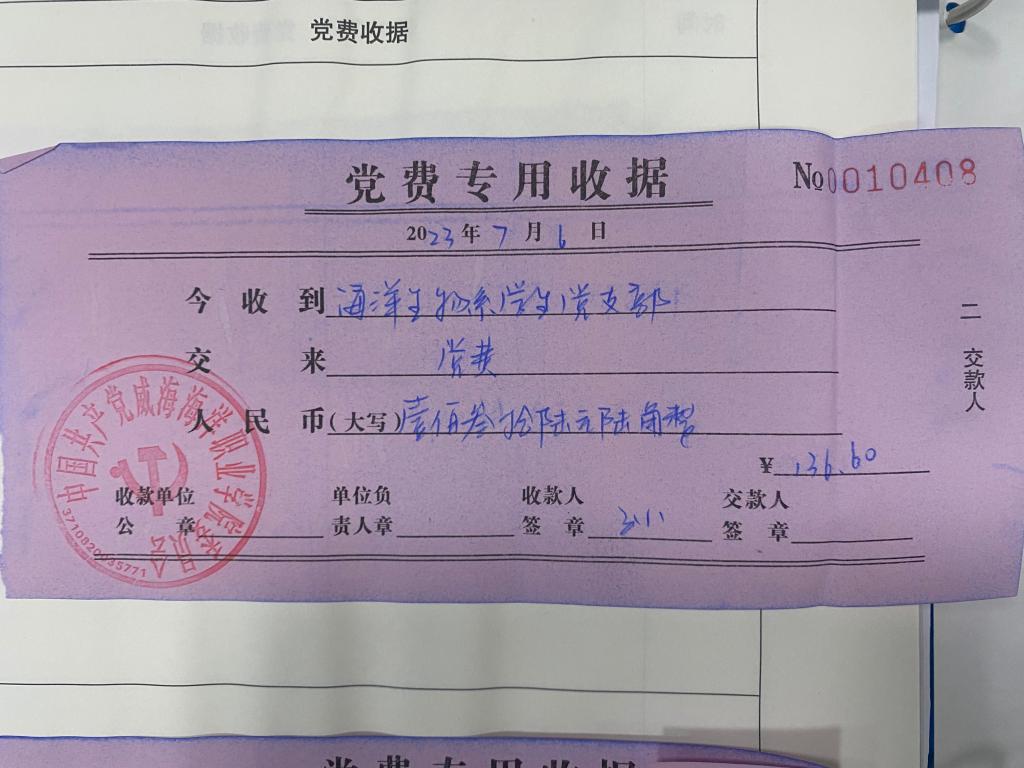 党费收据
党费专用收据 №0010408
2023年7月6日
今收到海洋生物系学生党支部
交来 党费
人民币(大写)壹佰叁拾陆元陆角整
¥136.60
收款单位 单位负 收款人 交款人
公章 责人章 签章 签章
二 交款人
中国共产党威海海洋职业学院委员会
3710820035771
党费专用收据